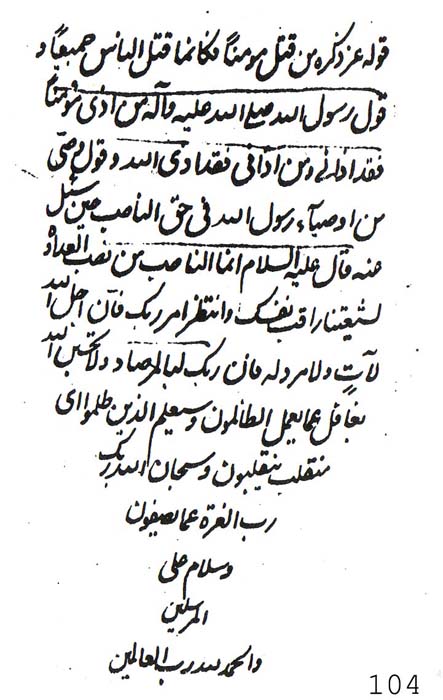 قوله عز ذكره من قتل مومناً فكانما قتل الناس جميعاً و
قول رسول الله صلى الله عليه وآله من اذى مؤمناً
فقد اذانى ومن آذانى فقد اذى الله وقول وصى
من اوصياء رسول الله فى حق الناصب حين سئل
عنه قال عليه السلام انما الناصب من نصب العداوة
لشيعتنا راقب نفسك وانتظر امر ربك فان اجل الله
لآتٍ ولا مرد له فان ربك لبالمرصاد ولا تحسبن الله
بغافل عما يعمل الظالمون وسيعلم الذين ظلموا اى
منقلب ينقلبون وسبحان الله ربك
رب العزة عما يصفون
وسلام على
المرسلين
والحمد لله رب العالمين
104